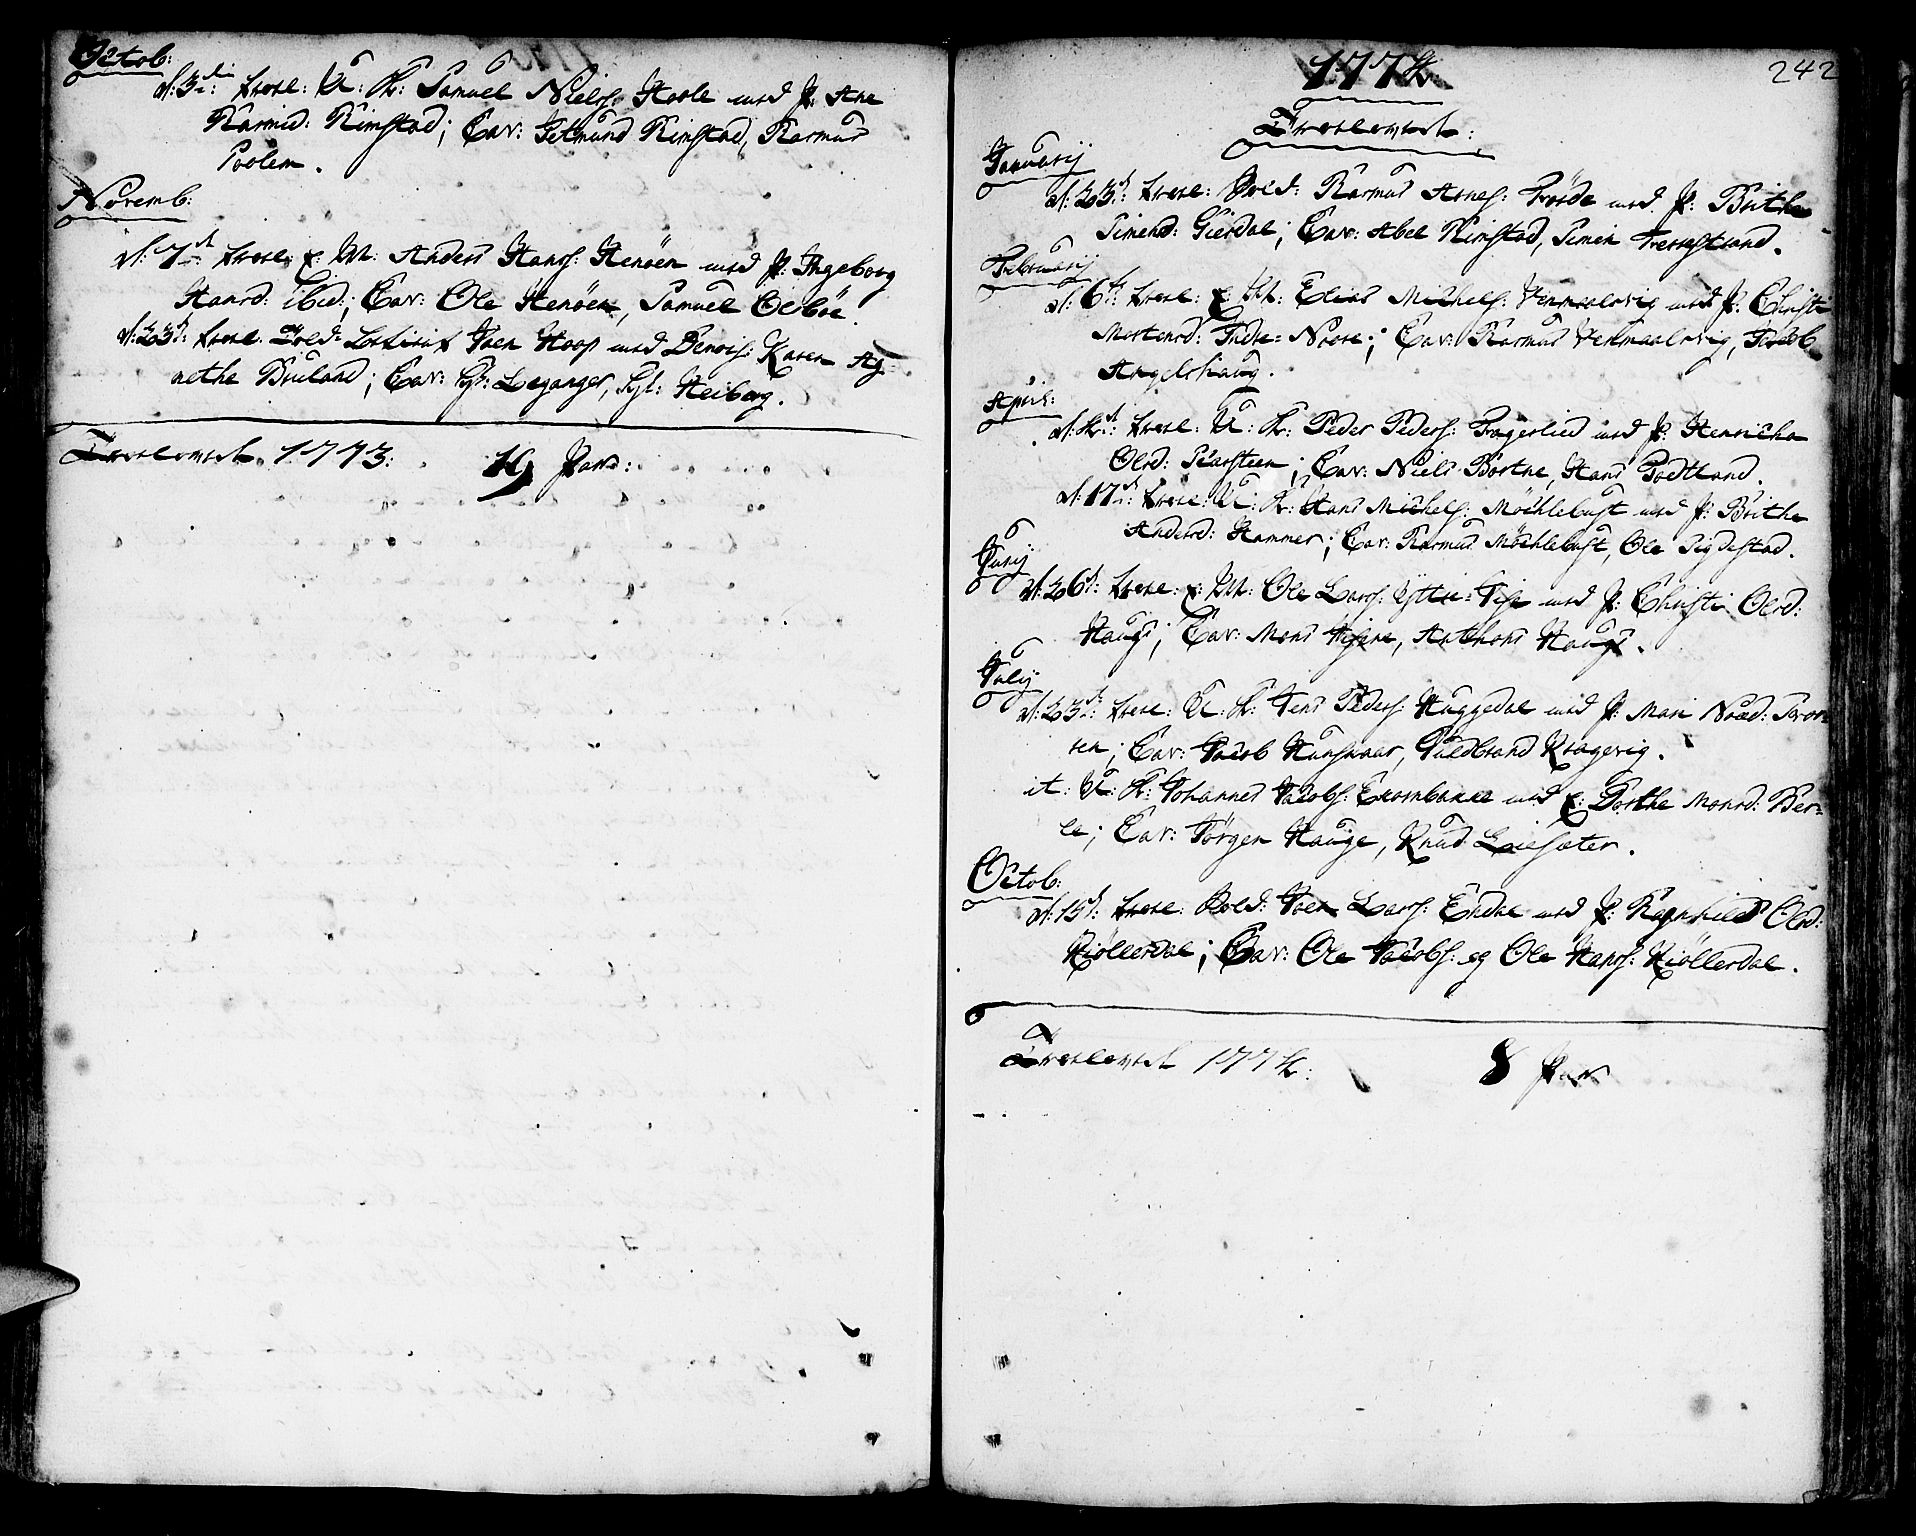 Octob:
d: 3die trol: U: K: Samuel Niels: Hoole med P: Ane
Rasmd: Rimstad; Cav: Gitmund Rimstad, Rasmus
Soolem.
Novemb:
d: 7d trol: E: M: Anders Hans: Henöen med P: Ingeborg
Hansd: ibid; Cav: Ole Henöen, Samuel Oelböe
d: 23d: trol: Joen Hoop med Karen Ag
nethe Bruland; Cav: Leganger, Heiberg.
Trolovede 1773: 19 Par:
242
1774
Trolovede:
Januarij
d: 23d: trol: Sold: Rasmus Arnes: Förde med P: Brithe
Simend: Gierdal; Cav: Abel Rimstad, Simen Tressestrand.
Februarij
d: 6te: trol: E: M: Elias Michels: Vemmelsvig med P: Christi
Mortensd: Indre-Noore; Cav: Rasmus Vemmelsvig, Jacob
Angelshaug.
April:
d: 4d: trol: U: K: Peder Peders: Fagerlied med P: Henricha
Olsd: Starsteen; Cav: Niels Börthe, Hans Godtland.
d: 17d: trol: U: K: Hans Michels: Möchlebust med P: Brithe
Andersd: Hammer; Cav: Rasmus Möchlebust, Ole Sigdestad.
Junij
d: 26d: trol: E: M: Ole Lars: Yttre- med P: Christi Olsd:
Hauge; Cav: Mons, Anthoni Hauge.
Julij
d: 23d: trol: U: K: Jens Peders: Huggedal med P: Mari
sen; Cav: Jacob, Guldbrand Kragevig.
it: U: K: Johannes Jacobs: med E: Dorthe Monsd: Ber-
le; Cav: Jörgen Hauge, Knud Liesæter.
Octob:
d: 15d: trol: Sold: Joen Lars: Endal med P: Ragnhild Olsd:
Kiöllerdal; Cav: Ole Jacobs: og Ole Hans: Kiöllerdal.
Trolovede 1774: 8 Par